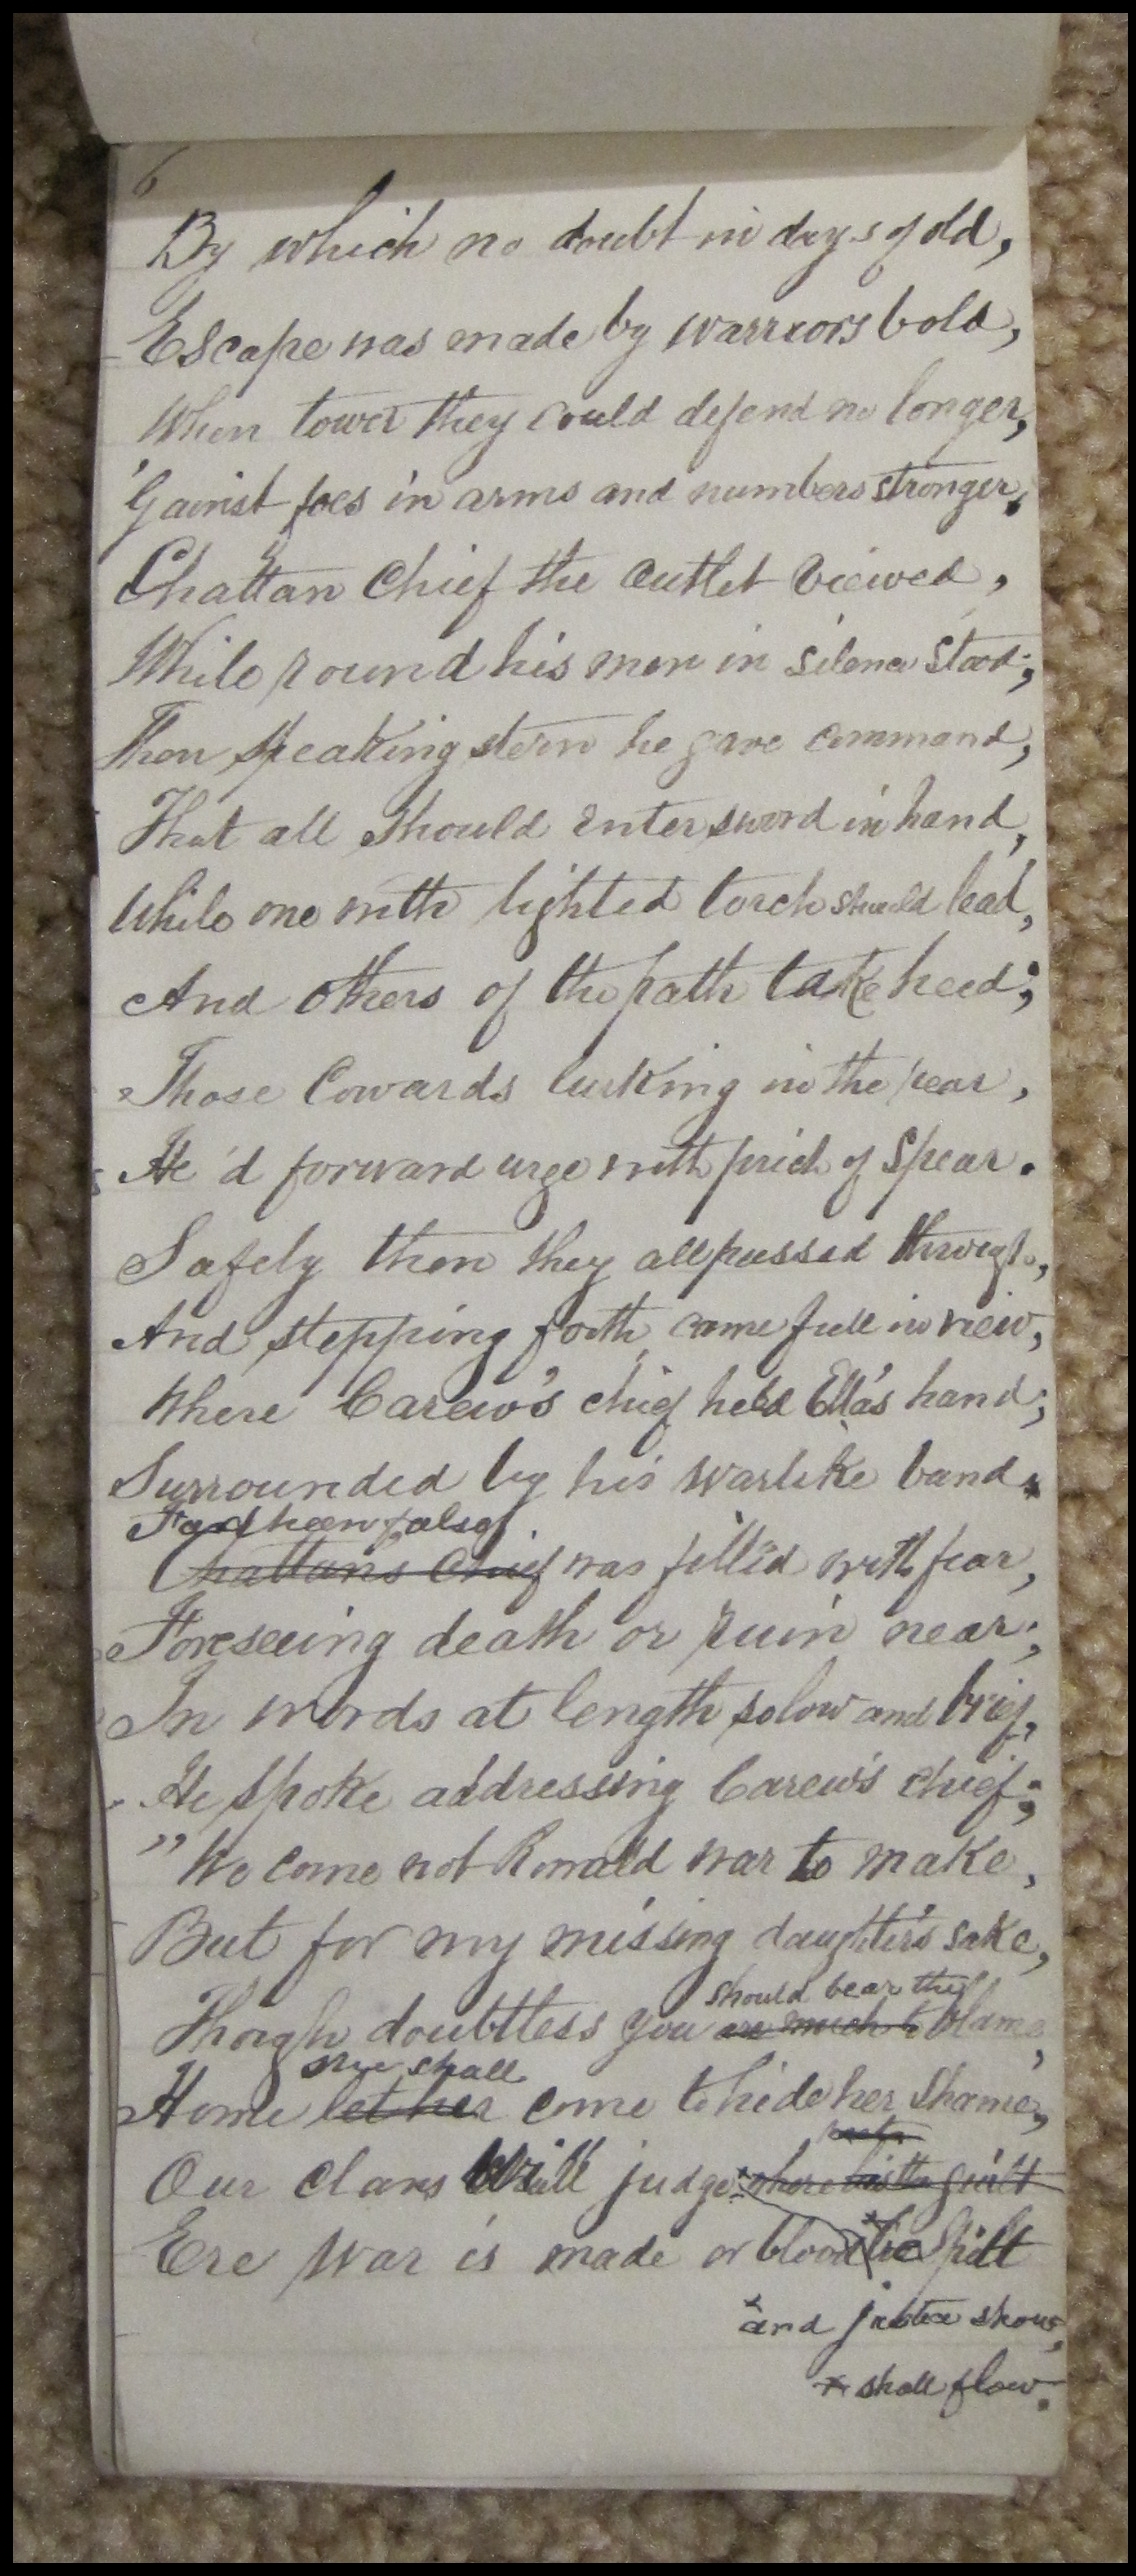 6
By which no doubt in days of old,
Escape was made by warriors bold,
When tower they could defend no longer,
'Gainst foes in arms and numbers stronger.
Chattan Chief the outlet viewed,
While round his men in silence stood;
Then speaking stern he gave command,
That all should enter sword in hand,
While one with lighted torch should lead,
And others of the path take heed;
Those Cowards lurking in the rear,
He'd forward urge with prick of Spear.
Safely then they all passed through,
And stepping forth came full in view,
Where Carew's chief held Ella's hand;
Surrounded by his warlike band.
Chattans Chief was fill'd with fear,
Foreseeing death or ruin near;
In words at length so low and brief,
He spoke addressing Carew's chief;
"We come not Ronald war to make,
But for my missing daughter's sake,
should bear the
Though doubtless you are much to blame,
she shall
Home let her come to hide her shame,
Our clans will judge where guilt
Ere war is made or blood be spilt
and justice show,
shall flow.